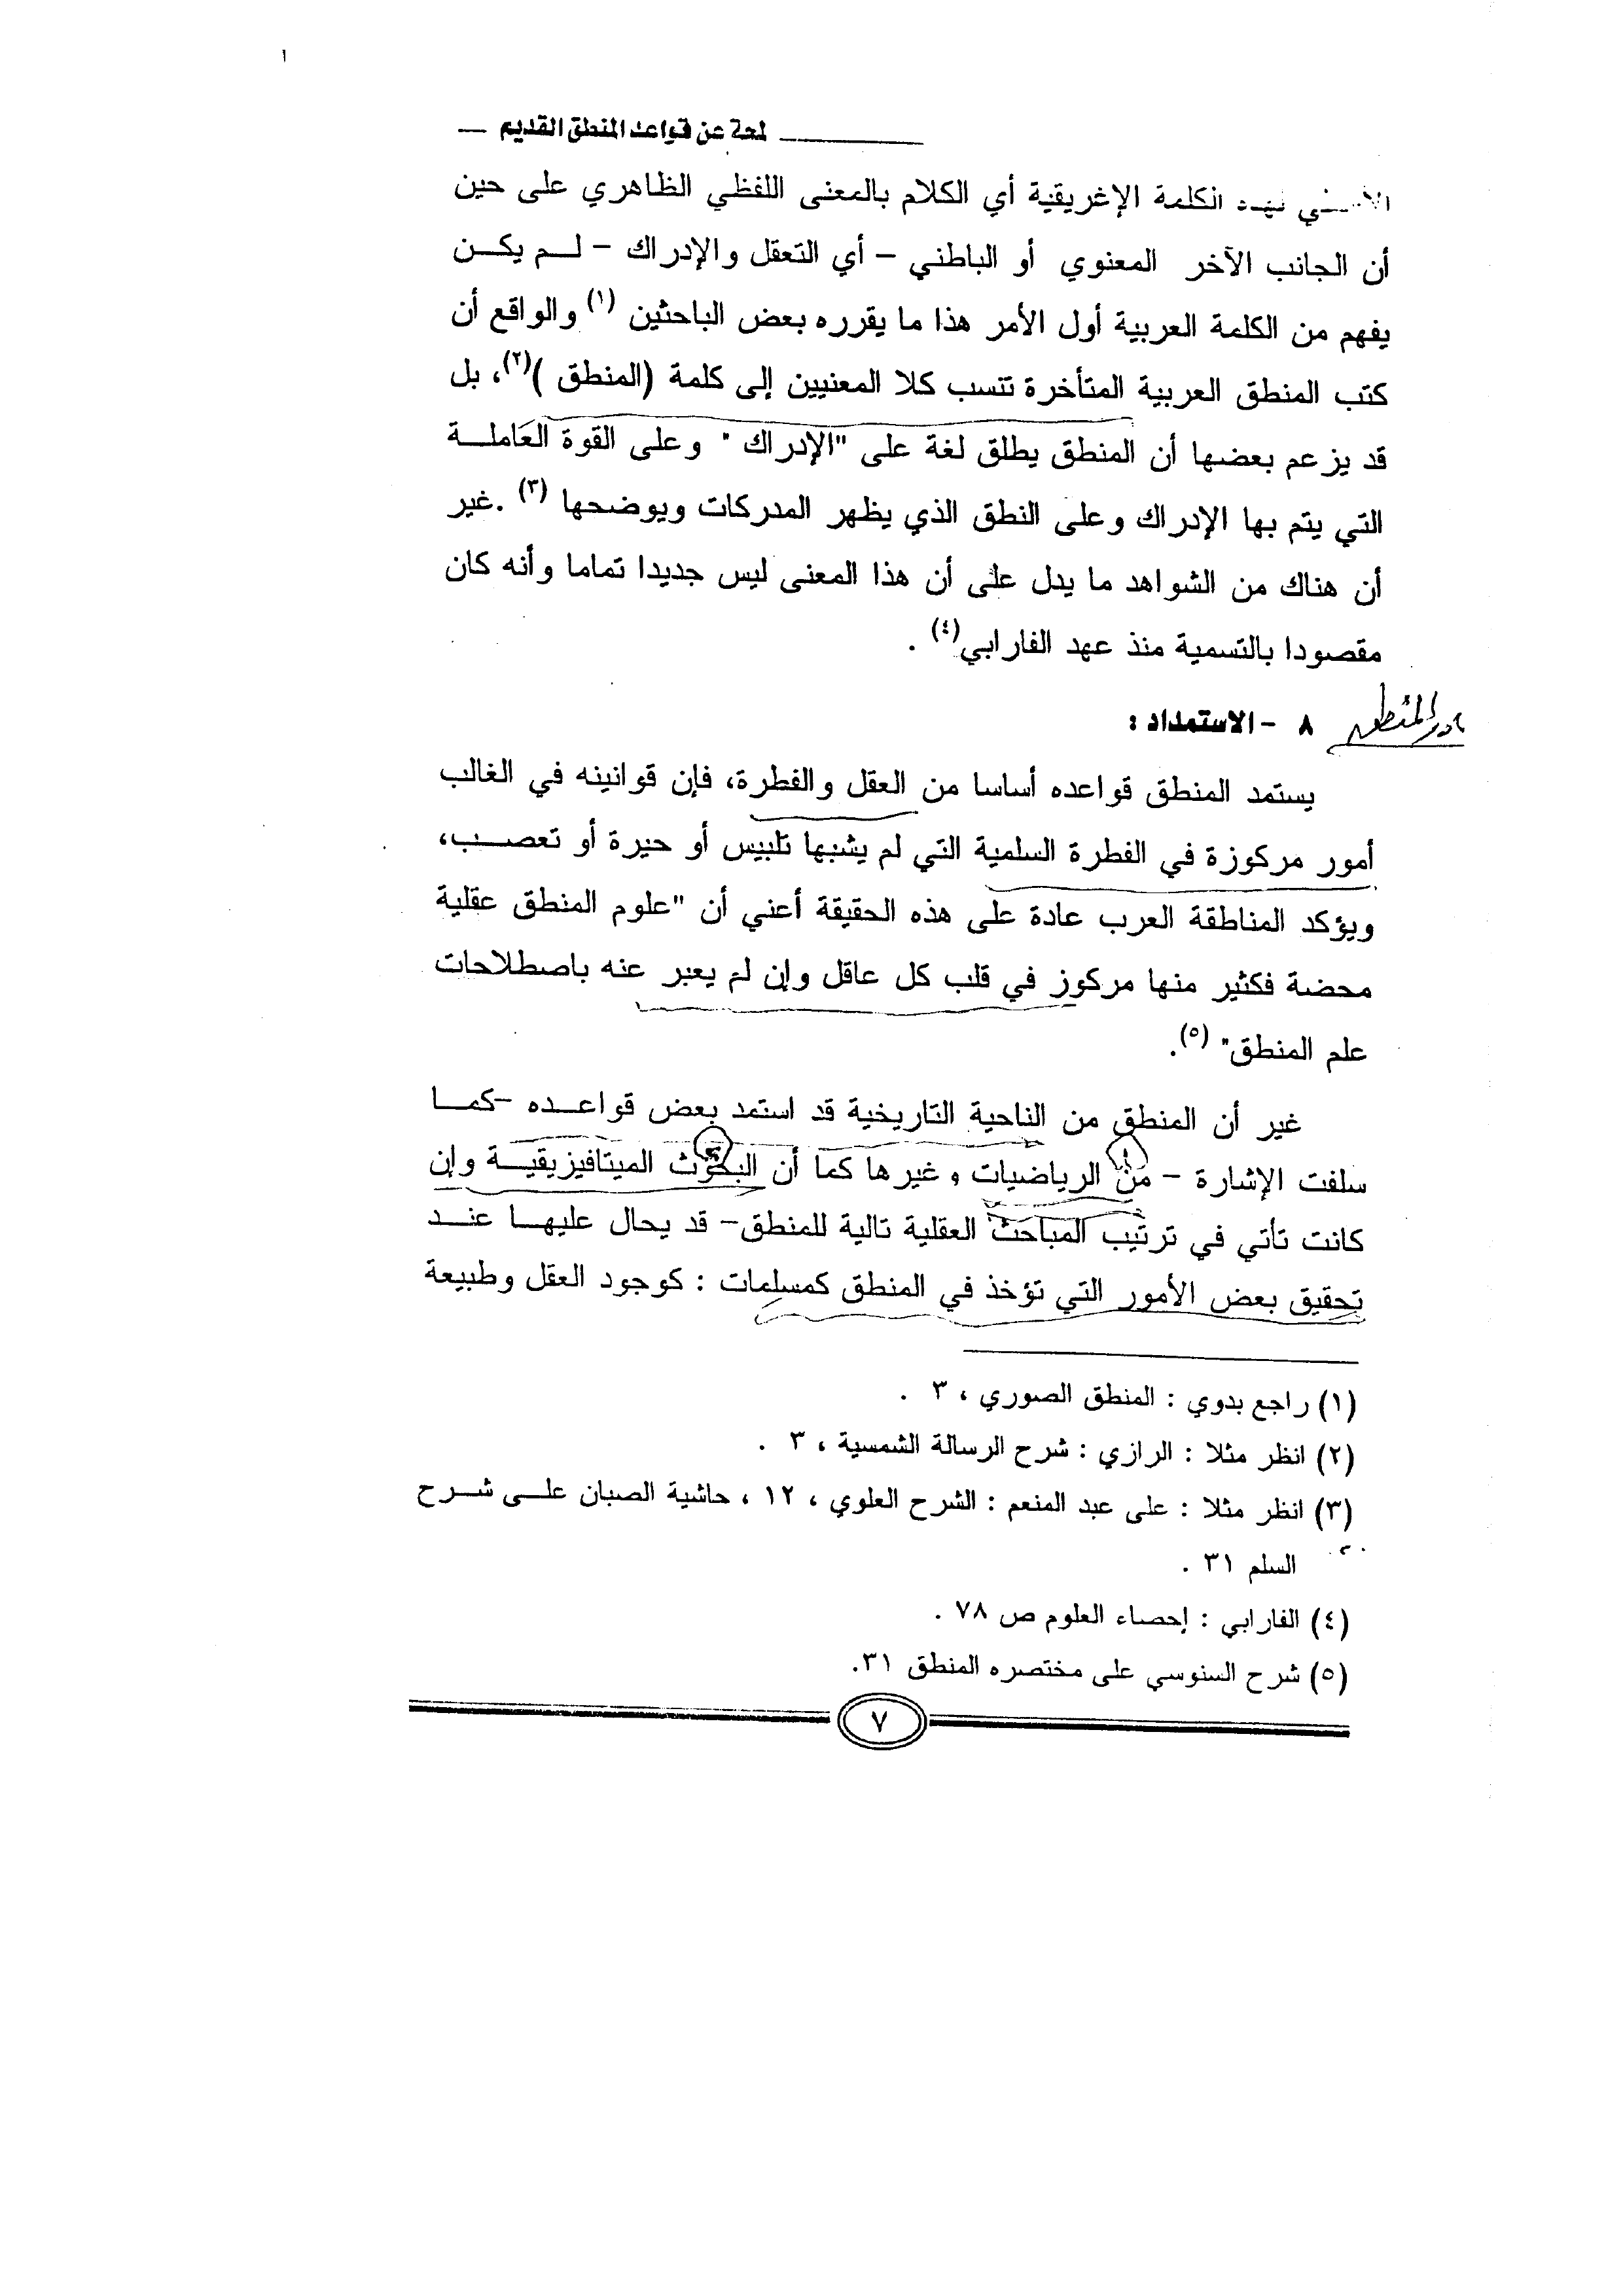 لمحة عن قواعد المنطق القديم
الكلمة الإغريقية أي الكلام بالمعنى اللفظي الظاهري على حين
أن الجانب الآخر المعنوي أو الباطني – أي التعقل والإدراك – لم يكن
يفهم من الكلمة العربية أول الأمر هذا ما يقرره بعض الباحثين (١) والواقع أن
كتب المنطق العربية المتأخرة تنسب كلا المعنيين إلى كلمة (المنطق )(٢)، بل
قد يزعم بعضها أن المنطق يطلق لغة على "الإدراك " وعلى القوة العاملة
التي يتم بها الإدراك وعلى النطق الذي يظهر المدركات ويوضحها (٣) .غير
أن هناك من الشواهد ما يدل على أن هذا المعنى ليس جديدا تماما وأنه كان
مقصودا بالتسمية منذ عهد الفارابي(٤) .
٨ - الاستمداد :
يستمد المنطق قواعده أساسا من العقل والفطرة، فإن قوانينه في الغالب
أمور مركوزة في الفطرة السلمية التي لم يشبها تلبيس أو حيرة أو تعصب،
ويؤكد المناطقة العرب عادة على هذه الحقيقة أعني أن "علوم المنطق عقلية
محضة فكثير منها مركوز في قلب كل عاقل وإن لم يعبر عنه باصطلاحات
علم المنطق" (٥).
غير أن المنطق من الناحية التاريخية قد استمد بعض قواعده -كما
سلفت الإشارة – من الرياضيات وغيرها كما أن البحوث الميتافيزيقية وإن
كانت تأتي في ترتيب المباحث العقلية تالية للمنطق– قد يحال عليها عند
تحقيق بعض الأمور التي تؤخذ في المنطق كمسلمات : كوجود العقل وطبيعة
(١) راجع بدوي : المنطق الصوري ، ٣ .
(٢) انظر مثلا : الرازي : شرح الرسالة الشمسية ، ٣ .
(٣) انظر مثلا : على عبد المنعم : الشرح العلوي ، ١٢ ، حاشية الصبان على شرح
السلم ٣١ .
(٤) الفارابي : إحصاء العلوم ص ٧٨ .
(٥) شرح السنوسي على مختصره المنطق ٣١.
٧